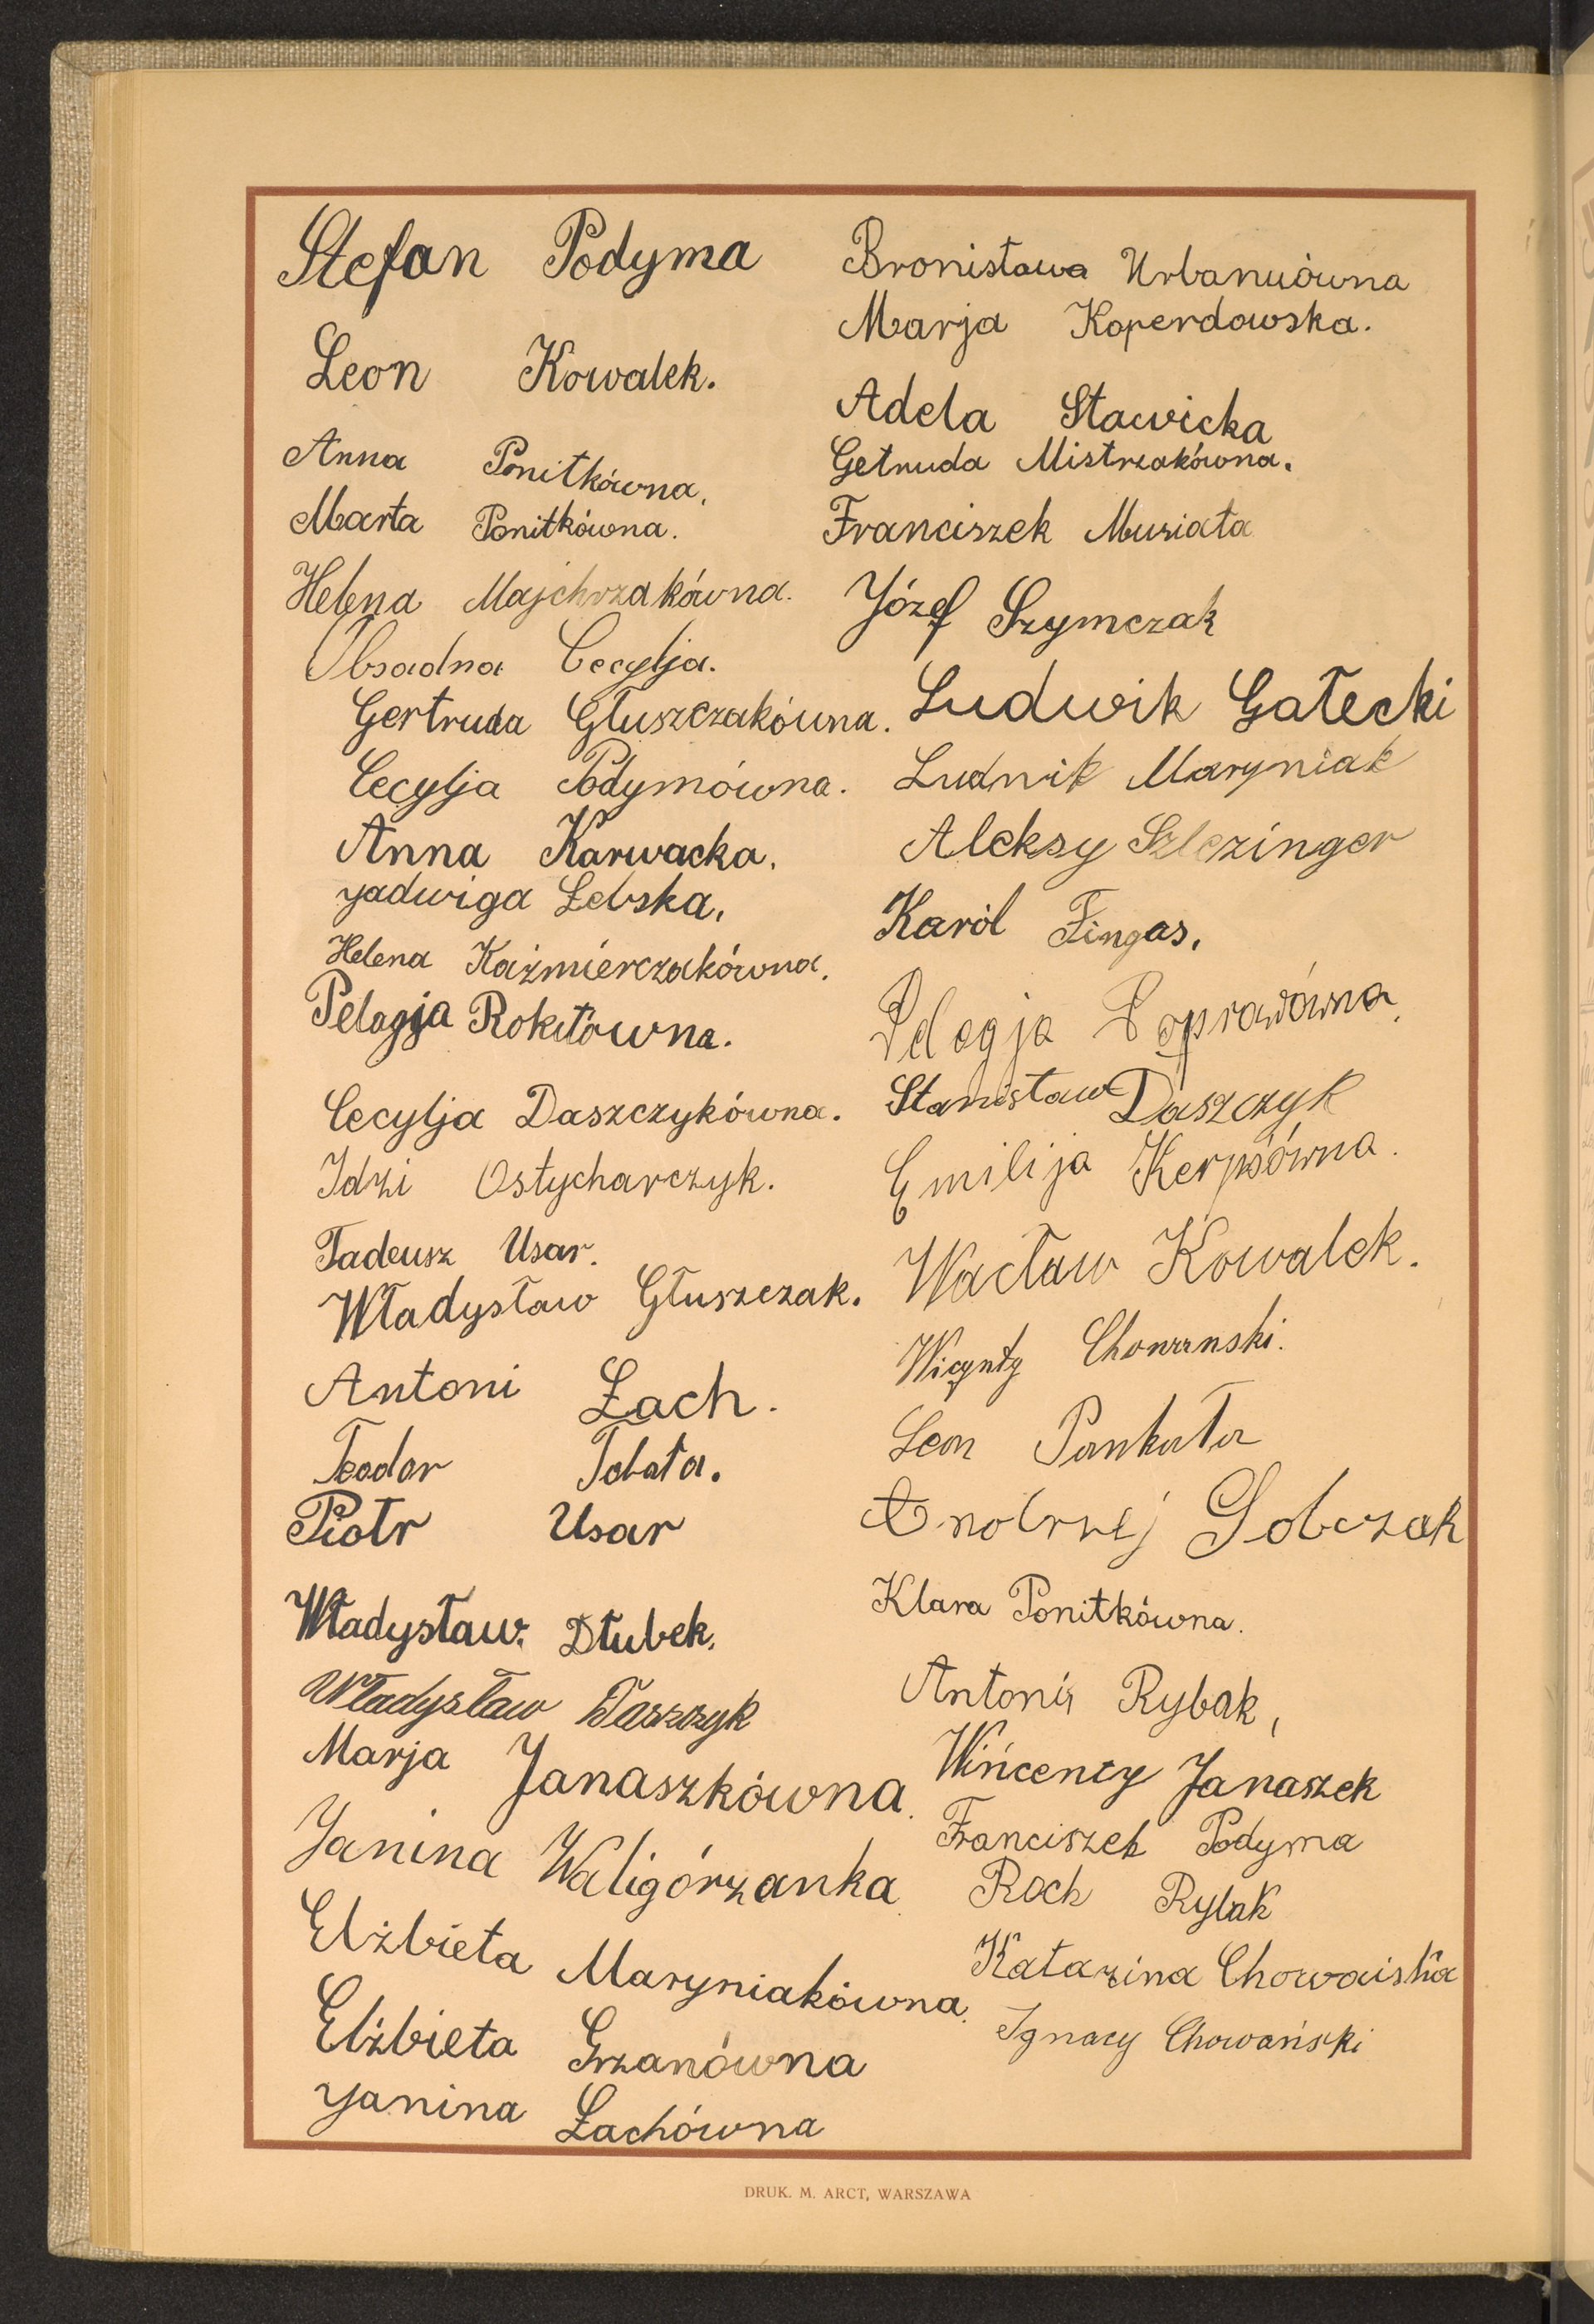 Stefan Podyma
Leon Kowalek.
Anna Ponitkówna.
Marta Ponitkówna.
Helena Majchrzakówna.
Obsadna Cecylja.
Gertruda Głuszczakówna.
Cecylja Podymówna.
Anna Karwacka.
Jadwiga Łebska.
Helena Kaźmierczakówna.
Pelagja Rokitówna.
Cecylja Daszczykówna.
Idzi Ostycharczyk.
Tadeusz Usar.
Władysław Głuszczak.
Antoni Łach.
Teodor Tobała.
Piotr Usar
Władysław Dłubek.
Władysław Daszczyk
Marja Janaszkówna.
Janina Waligórzanka
Elżbieta Maryniakówna.
Elżbieta Grzanówna
Janina Łachówna
Bronisława
Marja Koperdowska.
Adela Stawicka
Getruda Mistrzakówna.
Franciszek Musiała
Józef Szymczak
Ludwik Gałecki
Ludwik Maryniak
Aleksy Szlezinger
Karól Fingas.
Pelagja Poprawówna.
Stanisław Daszczyk
Emilija Kerpsówna.
Wacław Kowalek.
Wicynty
Leon Pankała
Andrzej Sobczak
Klara Ponitkówna.
Antoni Rybak,
Wińcenty Janaszek
Franciszek Podyma
Roch Rybak
Katazina
Ignacy Chowański
DRUK. M. ARCT, WARSZAWA